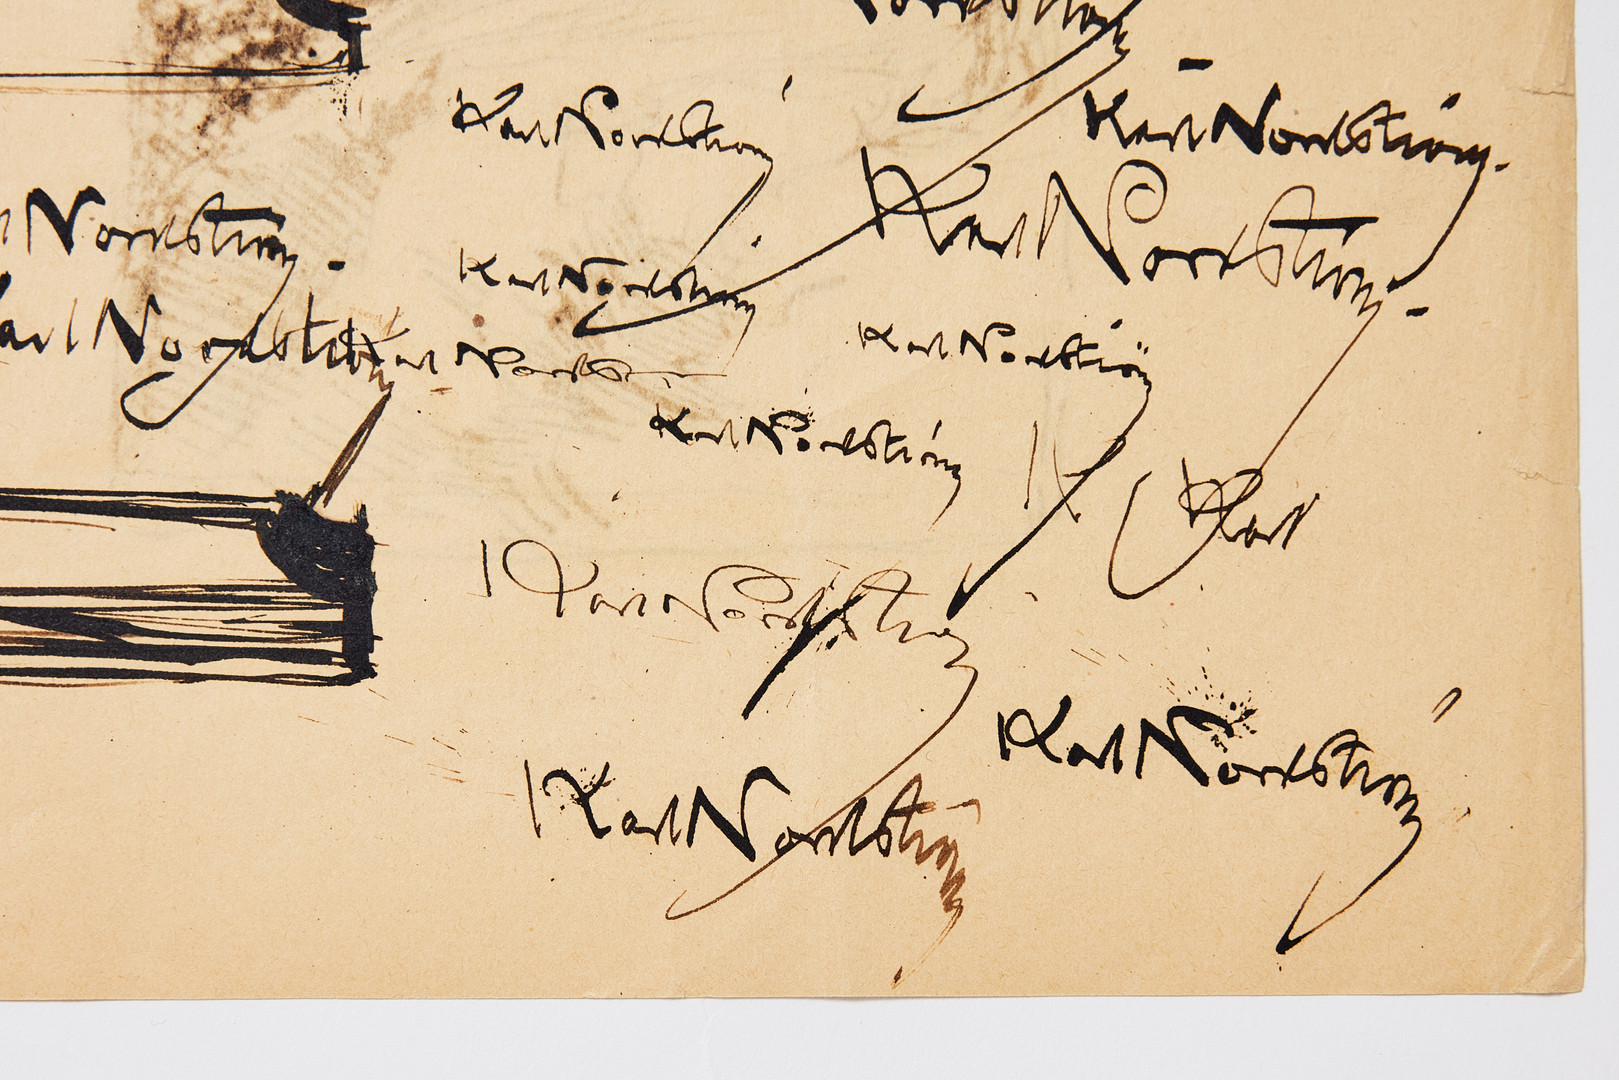 Karl Nordström
Karl Nordström.
Nordström.
Karl Nordström.
Karl Nordström
Karl Nordström
Karl Nordström
Karl Nords
Karl Nordström
K
Karl
Karl Nordström
Karl Nordström
Karl Nordström